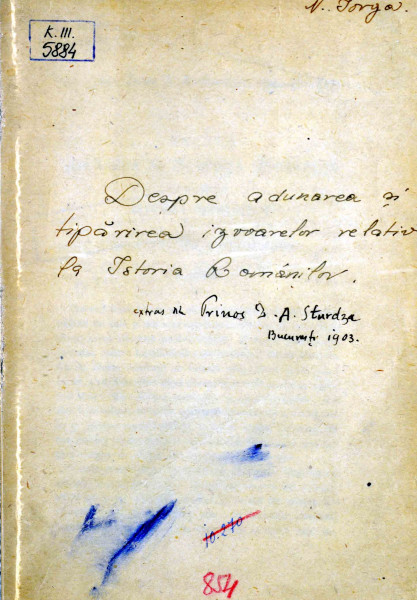 N. Iorga.
K. III.
5884
Despre adunarea și
tipărirea izvoarelor relativ
la Istoria Românilor.
extras din Prinos D. A. Sturdza
București 1903.
10.270
854